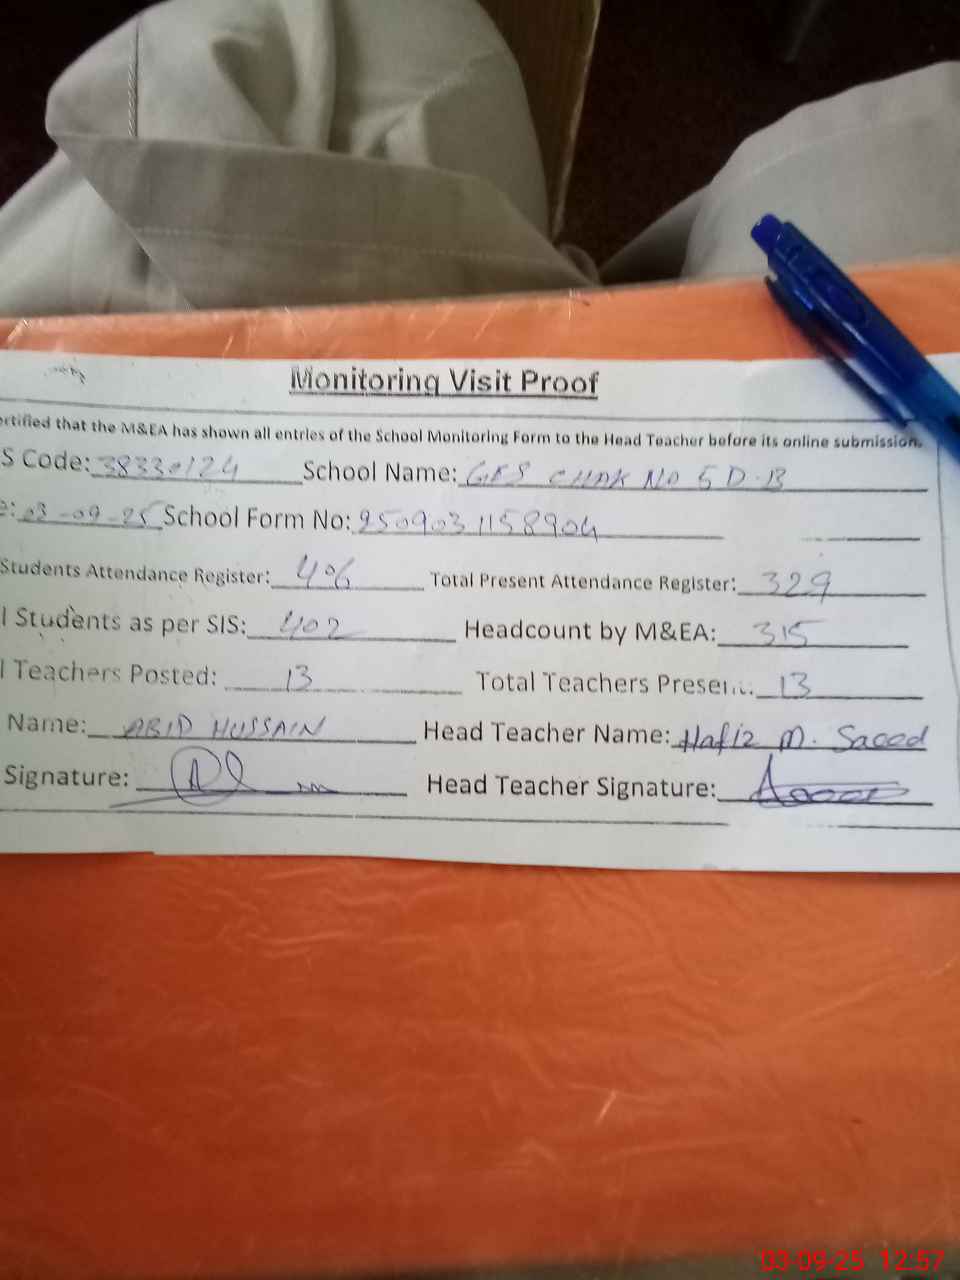 Monitoring Visit Proof
ertified that the M&EA has shown all entries of the School Monitoring Form to the Head Teacher before its online submission.
S Code: 38330124 School Name: GES CHAK NO 5 D.B
e: 03-09-25 School Form No: 2509031158904
Students Attendance Register: 406 Total Present Attendance Register: 329
l Students as per SIS: 402 Headcount by M&EA: 315
l Teachers Posted: 13 Total Teachers Present: 13
Name: ABID HUSSAIN Head Teacher Name: Hafiz M. Saeed
Signature: Head Teacher Signature:
03-09-25 12:57